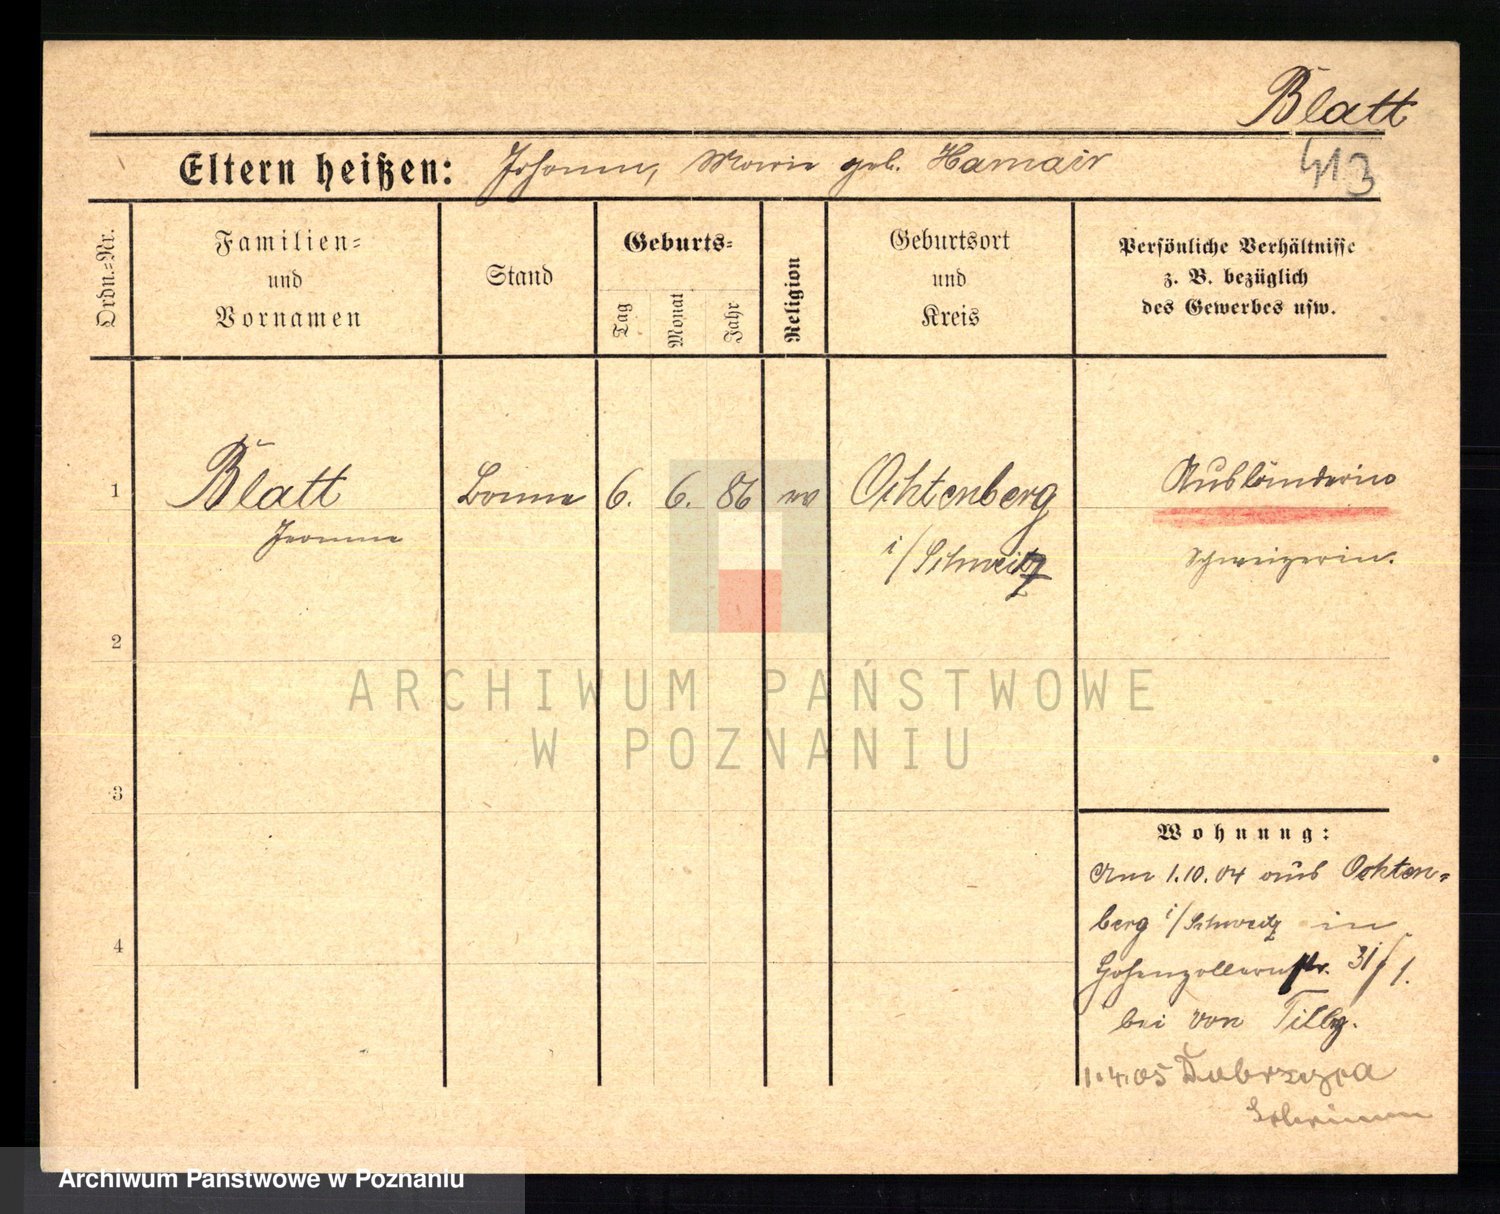 Blatt
413
Eltern heißen: Johann, Marie geb. Hamair
Ordn.=Nr.
Familien=
und
Vornamen
Stand
Geburts=
Tag
Monat
Jahr
Religion
Geburtsort
und
Kreis
Persönliche Verhältnisse
z. B. bezüglich
des Gewerbes usw.
1
Blatt
Bonne
6. 6. 86
ev
Ochtenberg
i/Schweitz
Ausländerin
Schweizerin.
2
3
4
Wohnung:
Am 1.10.04 aus Ochten=
berg i/Schweitz in
Hohenzollernstr. 31/1.
bei von Tilly.
1.4.05
ARCHIWUM PAŃSTWOWE
W POZNANIU
Archiwum Państwowe w Poznaniu